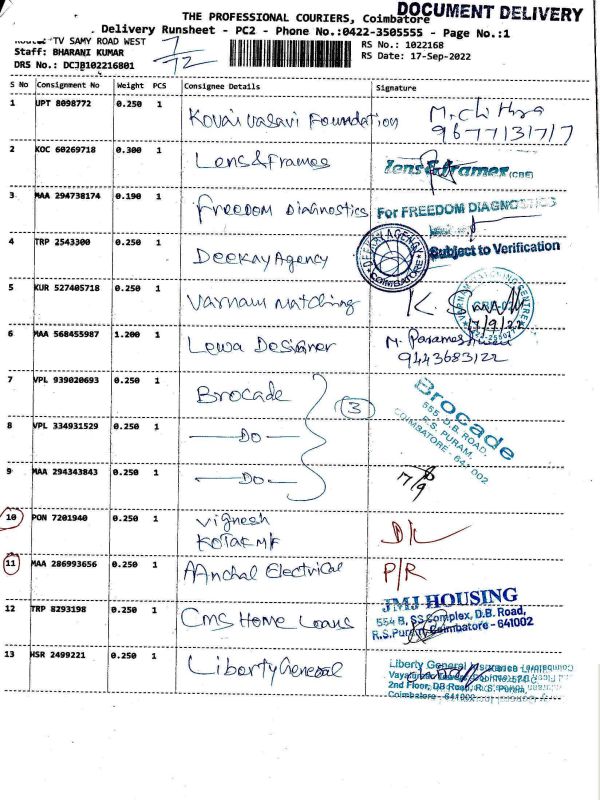 DOCUMENT DELIVERY
THE PROFESSIONAL COURIERS, Coimbatore
Delivery Runsheet - PC2 - Phone No.:0422-3505555 - Page No.:1
TV SAMY ROAD WEST
RS No.: 1022168
Staff: BHARANI KUMAR
RS Date: 17-Sep-2022
DRS No.: DCJB102216801
7/12
S No Consignment No Weight PCS Consignee Details Signature
1 UPT 8098772 0.250 1 Kovai Vasavi Foundation M. Chithra
9677131717
2 KOC 60269718 0.300 1 Lens & Frames Lens & Frames (CBE)
3 MAA 294738174 0.190 1 Freedom Diagnostics For FREEDOM DIAGNOSTICS
Subject to Verification
4 TRP 2543300 0.250 1 Deekay Agency DEEKAY AGENCY COIMBATORE
5 KUR 527405718 0.250 1 Varnam Matching K.
17/9/22
6 MAA 568455987 1.200 1 Lewa Designer M. Parameshwari
9443683122
7 VPL 939020693 0.250 1 Brocade
3
Brocade
555, D.B. ROAD,
R.S. PURAM,
COIMBATORE - 641 002
8 VPL 334931529 0.250 1 Do
9 MAA 294343843 0.250 1 Do
17/9
10 PON 7201940 0.250 1 Vignesh
KOTAK MF
D/L
11 MAA 286993656 0.250 1 AAnchal Electrical P/R
12 TRP 8293198 0.250 1 CMS Home Loans
JMJ HOUSING
554 B, SS Complex, D.B. Road,
R.S.Puram, Coimbatore - 641002
13 HSR 2499221 0.250 1 Liberty General
Liberty General Insurance Limited
2nd Floor, DB Road, R. S. Puram,
Coimbatore - 641002